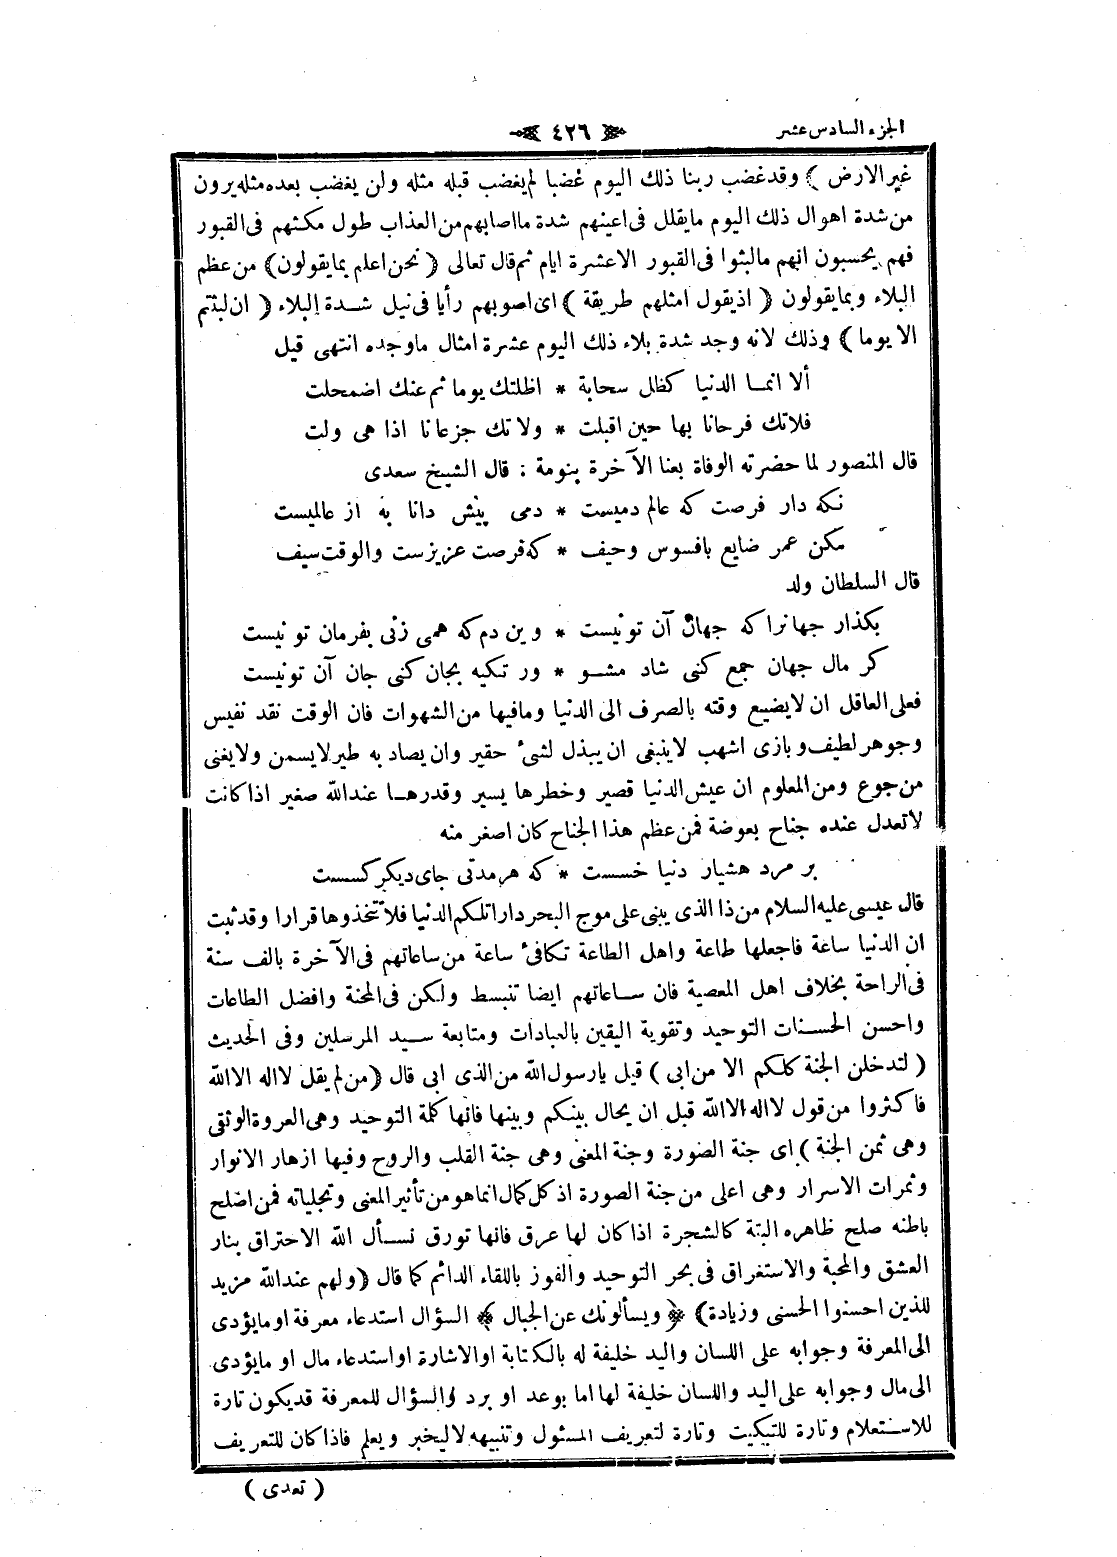 الجزء السادس عشر
٤٢٦
غير الارض ) وقد غضب ربنا ذلك اليوم غضبا لم يغضب قبله مثله ولن يغضب بعده مثله يرون
من شدة اهوال ذلك اليوم ما يقلل فى اعينهم شدة ما اصابهم من العذاب طول مكثهم فى القبور
فهم يحسبون انهم ما لبثوا فى القبور الا عشرة ايام ثم قال تعالى ( نحن اعلم بما يقولون ) من عظم
البلاء وبما يقولون ( اذ يقول امثلهم طريقة ) اى اصوبهم رأيا فى نيل شدة البلاء ( ان لبثتم
الا يوما ) وذلك لانه وجد شدة بلاء ذلك اليوم عشرة امثال ما وجده انتهى قيل
ألا انما الدنيا كظل سحابة * اظلتك يوما ثم عنك اضمحلت
فلاتك فرحانا بها حين اقبلت * ولاتك جزعانا اذا هى ولت
قال المنصور لما حضرته الوفاة بعنا الآخرة بنومة : قال الشيخ سعدى
نكه دار فرصت كه عالم دميست * دمى پيش دانا به از عالميست
مكن عمر ضايع بافسوس وحيف * كه فرصت عزيزست والوقت سيف
قال السلطان ولد
بكذار جهانرا كه جهان آن تو نيست * وين دم كه همى زنى بفرمان تو نيست
كر مال جهان جمع كنى شاد مشو * ور تكيه بجان كنى جان آن تو نيست
فعلى العاقل ان لا يضيع وقته بالصرف الى الدنيا ومافيها من الشهوات فان الوقت نقد نفيس
وجوهر لطيف وبازى اشهب لا ينبغى ان يبذل لشئ حقير وان يصاد به طير لا يسمن ولا يغنى
من جوع ومن المعلوم ان عيش الدنيا قصير وخطرها يسير وقدرها عند الله صغير اذا كانت
لا تعدل عنده جناح بعوضة فمن عظم هذا الجناح كان اصغر منه
بر مرد هشيار دنيا خسست * كه هر مدتى جاى ديكر كسست
قال عيسى عليه السلام من ذا الذى يبنى على موج البحر دارا تلكم الدنيا فلا تتخذوها قرارا وقد ثبت
ان الدنيا ساعة فاجعلها طاعة واهل الطاعة تكافئ ساعة من ساعاتهم فى الآخرة بالف سنة
فى الراحة بخلاف اهل المعصية فان ساعاتهم ايضا تنبسط ولكن فى المحنة وافضل الطاعات
واحسن الحسنات التوحيد وتقوية اليقين بالعبادات ومتابعة سيد المرسلين وفى الحديث
( لتدخلن الجنة كلكم الا من ابى ) قيل يا رسول الله من الذى ابى قال ( من لم يقل لا اله الا الله
فا كثروا من قول لا اله الا الله قبل ان يحال بينكم وبينها فانها كلمة التوحيد وهى العروة الوثقى
وهى ثمن الجنة ) اى جنة الصورة وجنة المعنى وهى جنة القلب والروح وفيها ازهار الانوار
وثمرات الاسرار وهى اعلى من جنة الصورة اذ كل كمال انما هو من تأثير المعنى وتجلياته فمن اصلح
باطنه صلح ظاهره البتة كالشجرة اذا كان لها عرق فانها تورق نسأل الله الاحتراق بنار
العشق والمحبة والاستغراق فى بحر التوحيد والفوز باللقاء الدائم كما قال ( ولهم عند الله مزيد
للذين احسنوا الحسنى وزيادة ) ﴿ ويسألونك عن الجبال ﴾ السؤال استدعاء معرفة او ما يؤدى
الى المعرفة وجوابه على اللسان واليد خليفة له بالكتابة او الاشارة او استدعاء مال او ما يؤدى
الى مال وجوابه على اليد واللسان خليفة لها اما بوعد او برد والسؤال للمعرفة قد يكون تارة
للاستعلام وتارة للتبكيت وتارة لتعريف المسئول وتنبيهه لا ليخبر ويعلم فاذا كان للتعريف
( تعدى )